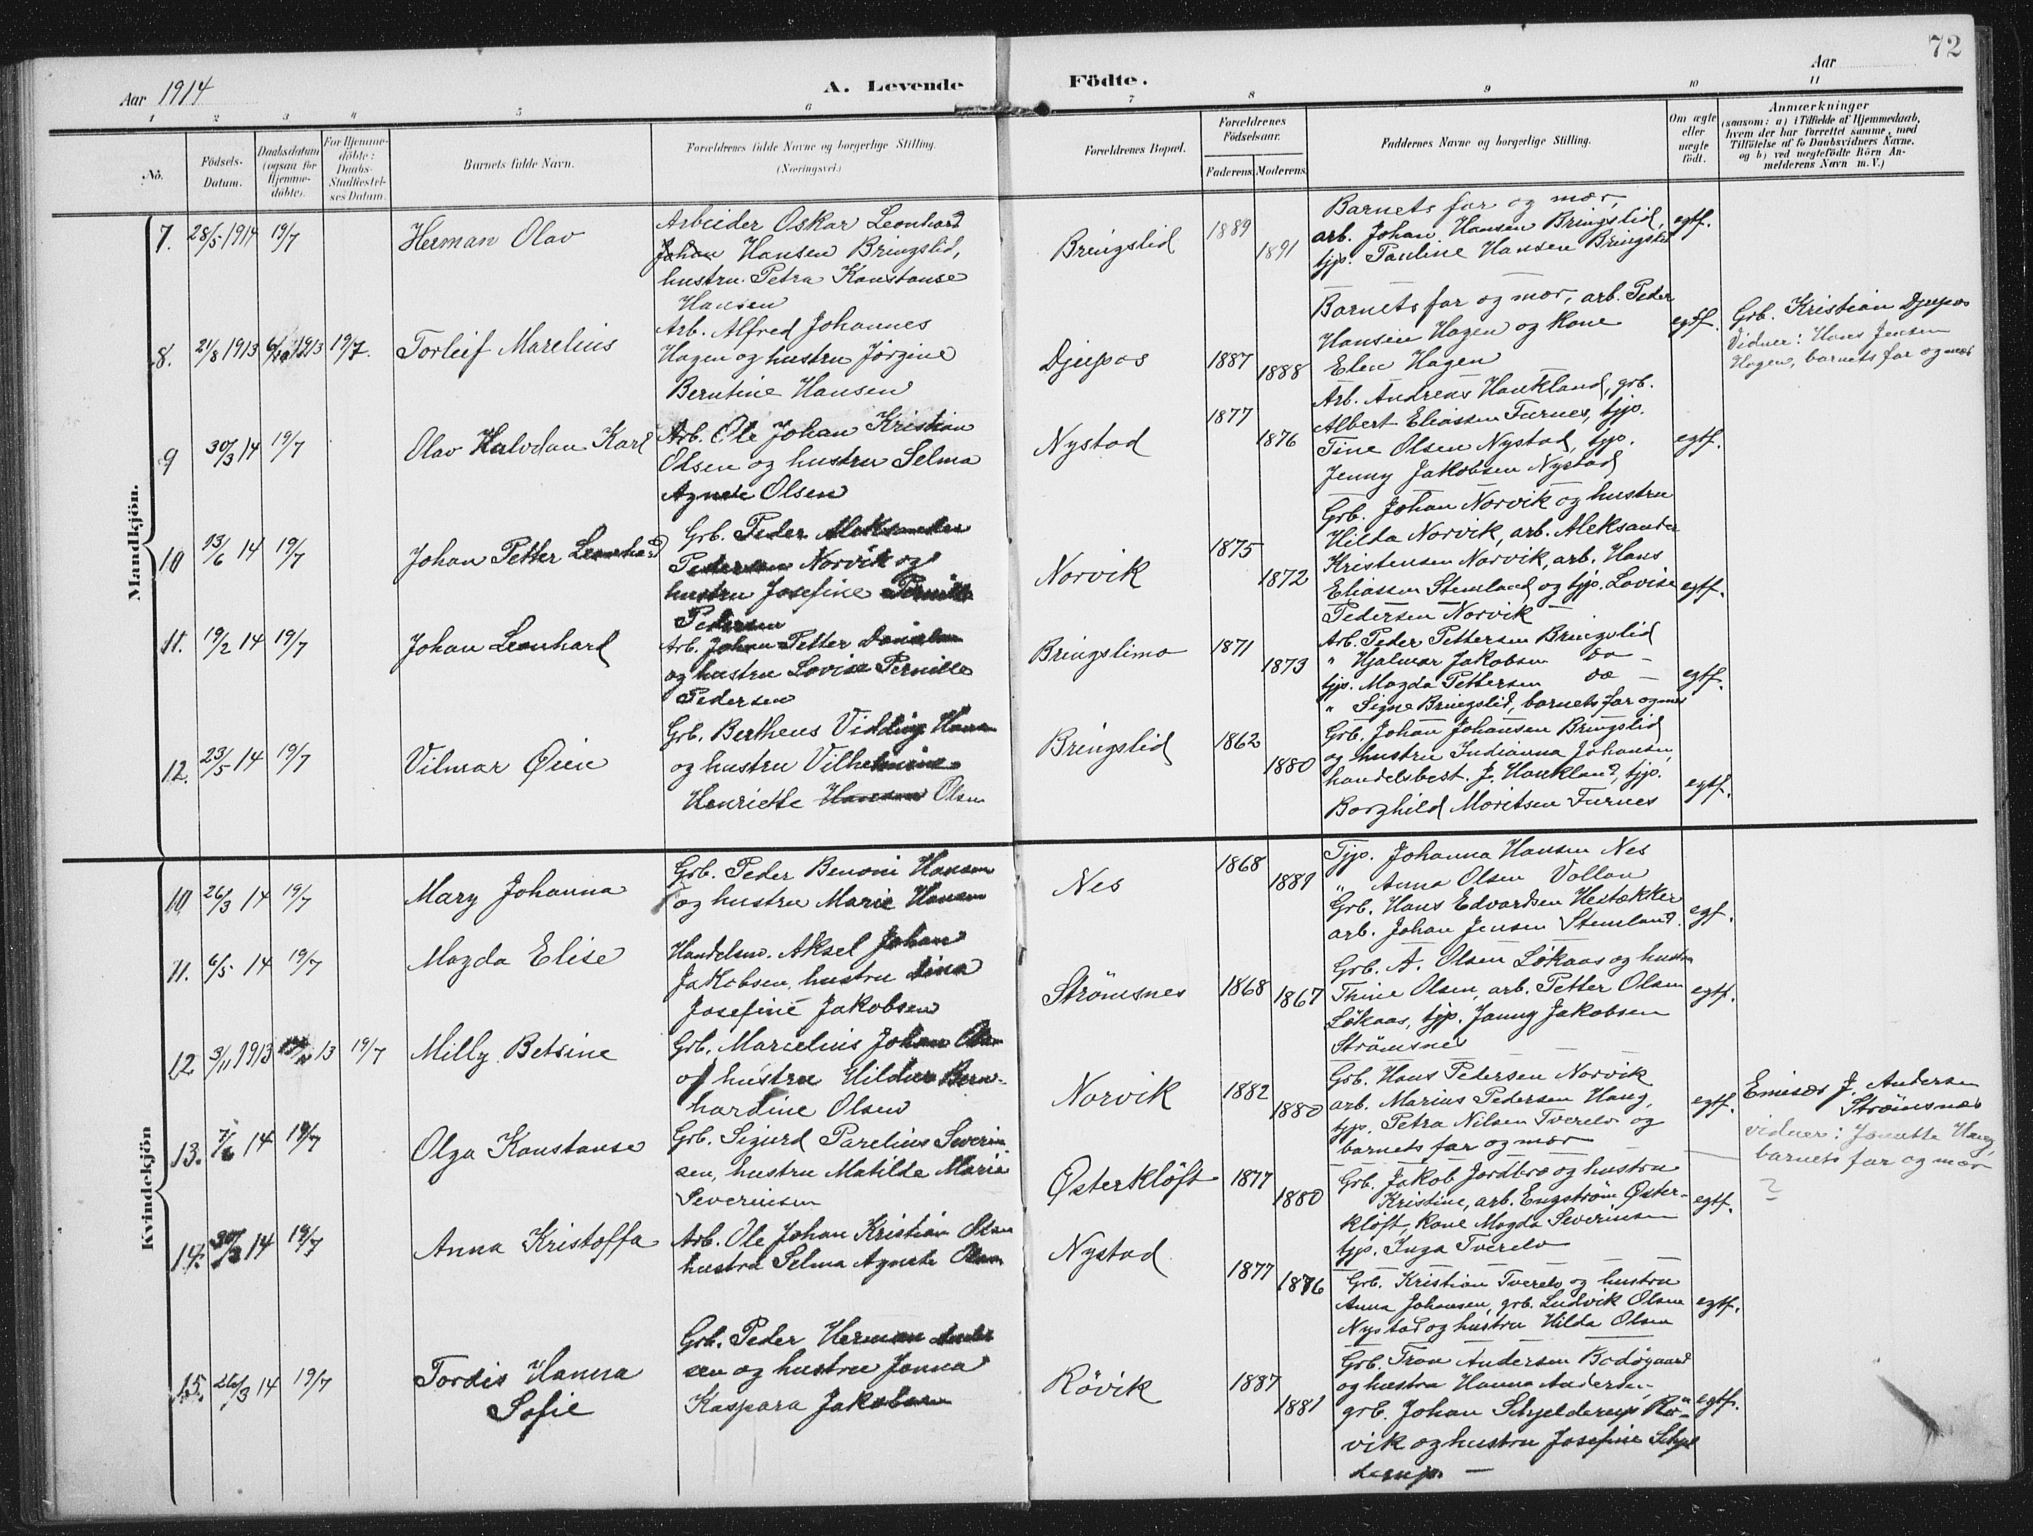 72
Aar 1914
A. Levende
Födte.
Aar
1 2 3 4 5 6 7 8 9 10 11
No.
Födsels-
Datum.
Daabsdatum
(ogsaa for
Hjemme-
döbte).
For Hjemme-
döbte:
Daabs-
Stadfæstel-
ses Datum.
Barnets fulde Navn.
Forældrenes fulde Navne og borgerlige Stilling.
(Næringsvei.)
Forældrenes Bopæl.
Forældrenes
Födselsaar.
Faderens. Moderens.
Faddernes Navne og borgerlige Stilling.
Om ægte
eller
uægte
födt.
Anmærkninger
(saasom: a) i Tilfælde af Hjemmedaab,
hvem der har forrettet samme, med
Tilföielse af to Daabsvidners Navne,
og b) ved uægtefödte Börn An-
melderens Navn m. V.)
Mandkjön.
7. 28/5 1914 19/7
Herman Olav
Arbeider Oskar Leonhard
Johan Hansen Bringslid,
hustru Petra Konstanse
Hansen
Bringslid
1889
1891
Barnets far og mor,
arb. Johan Hansen Bringslid,
tjp. Pauline Hansen Bringslid
egtf.
8. 21/8 1913 6/10 1913 19/7.
Torleif Marelius
Arb. Alfred Johannes
Hagen og hustru Jørgine
Berntine Hansen
Djupos
1887
1888
Barnets far og mor, arb. Peder
Hansen Hagen og kone
Elen Hagen
egtf.
Grb. Kristian Djupos
Vidner: Hans Jensen
Hagen, barnets far og mor
9 30/3 14 19/7
Olav Halvdan Karl
Arb. Ole Johan Kristian
Olsen og hustru Selma
Agnete Olsen
Nystad
1877
1876
Arb. Andreas Haukland, grb.
Albert Eliassen Furnes, tjp.
Tine Olsen Nystad, tjp.
Jenny Jakobsen Nystad
egtf.
10 13/6 14 19/7
Johan Petter Leonhard
Grb. Peder Aleksander
Pedersen Norvik og
hustru Josefine Pernille
Pedersen
Norvik
1875
1872
Grb. Johan Norvik og hustru
Hilda Norvik, arb. Aleksander
Kristensen Norvik, arb. Hans
Eliassen Stemland og tjp. Lovise
Pedersen Norvik
egtf.
11. 19/2 14 19/7
Johan Leonhard
Arb. Johan Petter Danielsen
og hustru Lovise Pernille
Pedersen
Bringslimo
1871
1873
Arb. Peder Pettersen Bringslid
" Hjalmar Jakobsen do -
tjp. Magda Pettersen do -
" Signe Bringslid, barnets far og mor
egtf.
12. 23/5 14 19/7
Vilmar Øien
Grb. Bertheus Vidding Hansen
og hustru Vilhelmine
Henriette Hansen Olsen
Bringslid
1862
1880
Grb. Johan Johansen Bringslid
og hustru Indianna Johansen,
handelsbest. J. Haukland, tjp.
Borghild Moritsen Furnes
egtf.
Kvindekjön
10 26/3 14 19/7
Mary Johanna
Grb. Peder Benoni Hansen
og hustru Marie Hansen
Nes
1868
1889
Tjp. Johanna Hansen Nes
" Anna Olsen Vollan
Grb. Hans Edvardsen Hestækker
arb. Johan Jensen Stemland.
egf.
11. 6/5 14 19/7
Magda Elise
Handelsm. Aksel Johan
Jakobsen, hustru Dina
Josefine Jakobsen
Strömsnes
1868
1867
Grb. A. Olsen Løkaas og hustru
Thine Olsen, arb. Petter Olsen
Løkaas, tjp. Janny Jakobsen
Strømsnes
egtf.
12 3/11 1913 13 19/7
Milly Betsine
Grb. Marcelius Johan Olsen
og hustru Hildur Bern-
hardine Olsen
Norvik
1882
1880
Grb. Hans Pedersen Norvik
arb. Marius Pedersen Haug,
tjp. Petra Nilsen Tverelv og
barnets far og mor
egtf.
Emisær J. Andersen
Strømsnes
vidner: Jonette Haug,
barnets far og mor
?
13. 7/6 14 19/7
Olga Konstanse
Grb. Sigurd Parelius Severin
sen, hustru Matilde Marie
Severinsen
Østerkløft
1877
1880
Grb. Jakob Jordbro og hustru
Kristine, arb. Engstrøm Øster-
kløft, kone Magda Severinsen
tjp. Inga Tverelv
egtf.
14. 30/3 14 19/7
Anna Kristoffa
Arb. Ole Johan Kristian Olsen
hustru Selma Agnete Olsen
Nystad
1877
1876
Grb. Kristian Tverelv og hustru
Anna Johansen, grb. Ludvik Olsen
Nystad og hustru Hilda Olsen
egtf.
15. 26/3 14 19/7
Tordis Hanna
Sofie
Grb. Peder Herman Ander
sen og hustru Jonna
Kaspara Jakobsen
Rövik
1887
1881
Grb. Tron Andersen Bodøgaard
og hustru Hanna Andersen,
grb. Johan Schjelderup Rø-
vik og hustru Josefine Schjel
derup. —
egtf.